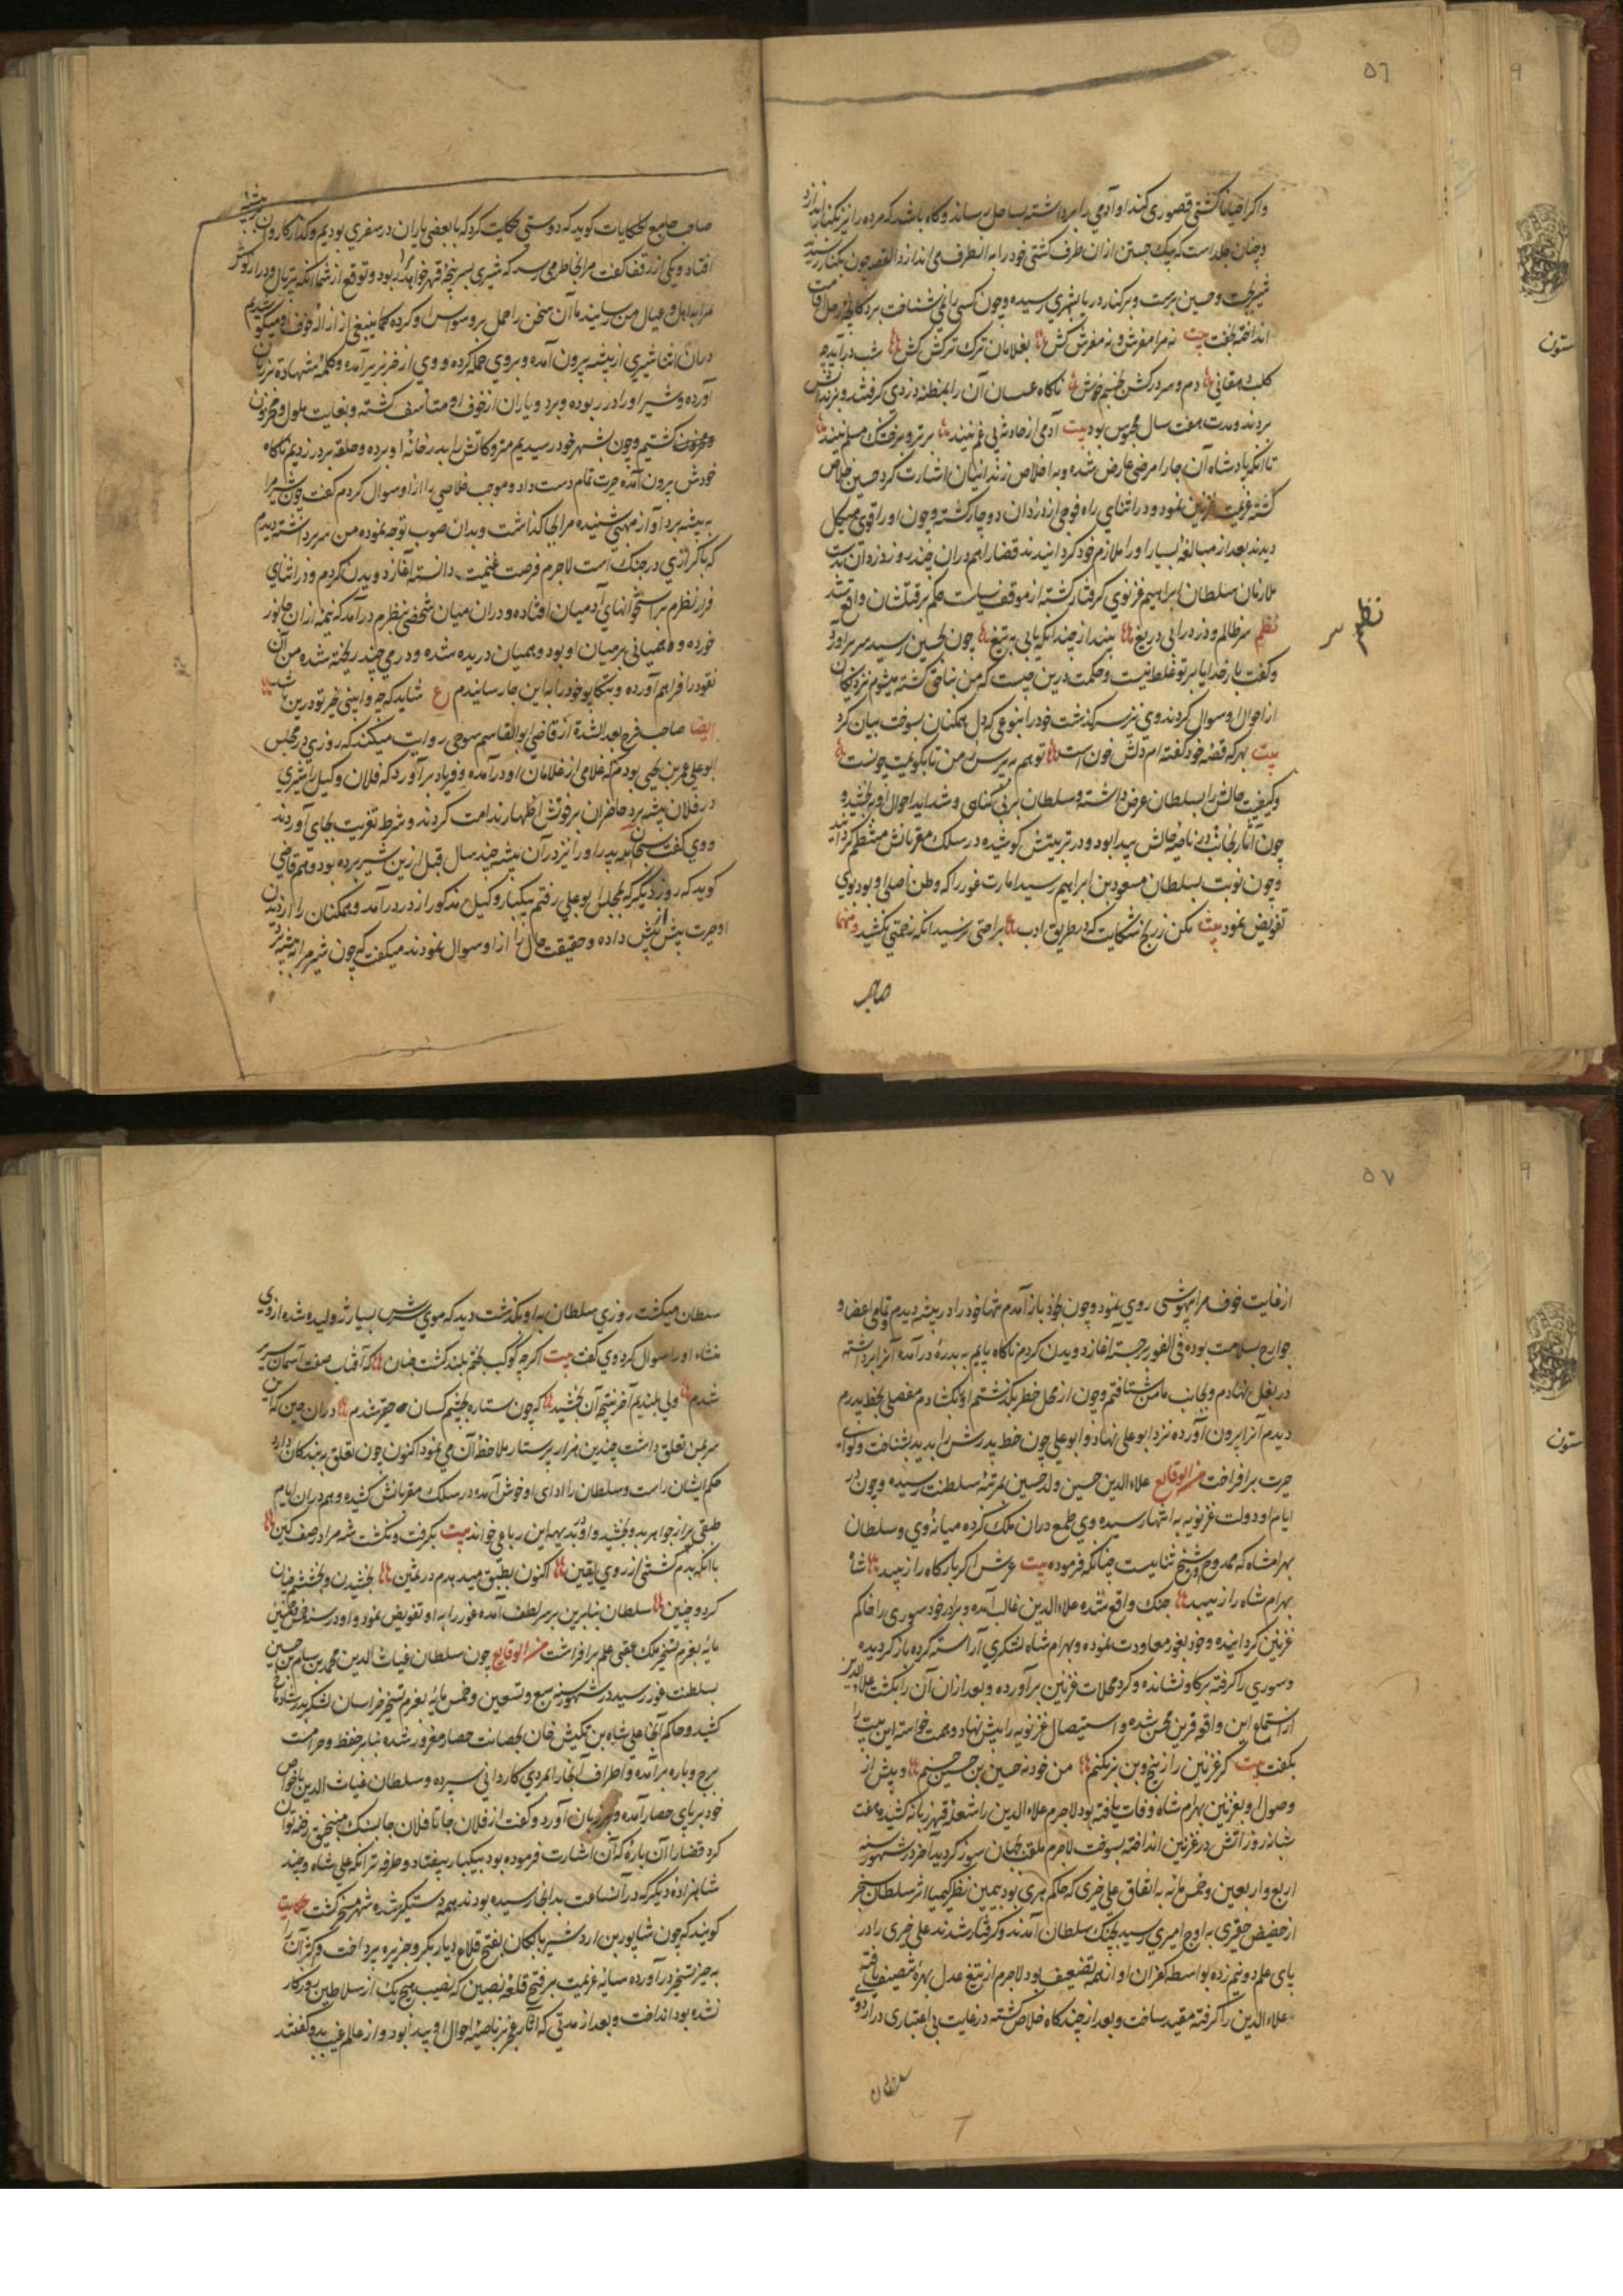 ٥٦
واکر احیانا کشتی قصوری کند او آدمی را برداشته بساحل رساند و کاه باشد که مرده را نیز بکنار اندازد
و چنان جلد است که بیک جستن از ان طرف کشتی خود را به انطرف می اندازد القصه چون بکنار رسیدند
وحسین برست و بر کنار دریا بشهری رسیده و چون کسی را نمی شناخت بر دکانچه رحل اقامت
انداخته بخفت بیت نه مرا مفرش و نه مفرش کش بغلامان ترک ترکش کش شب درآمد چه
دم و سر در کش خسم خوش ناکاه عسسان آن را بمظنه دزدی کرفتند و بزندانش
بردند و مدت هفت سال محبوس بود بیت آدمی از حادثه بی غم نیند بر تر و بر خشک مسلم نیند
تا انکه پادشاه آن جا را مرضی عارض شده و به اخلاص زندانیان اشارت کرد حسین خلاص
کشته عزیمت غزنین نمود و در اثنای راه فوجی از دزدان دو چار کشته و چون او را قوی هیکل
دیدند بعد از مبالغه بسیار او را ملازم خود کردانیدند قضا را هم دران چند روز دزدان بدست
ملازمان سلطان ابراهیم غزنوی کرفتار کشته از موقف سیاست حکم بر قتلشان واقع شد
نظم سر ظالم و دزد رانی دریغ بینداز چندانکه یابی به تیغ چون بحسین رسید سر برآورد
نظم
و کفت بار خدایا بر تو غلط نیست و حکمت درین چیست که من بناحق کشته میشوم نزدیکان
از احوال او سوال کردند وی نیز سرکذشت خود را بنوعی که دل همکنان بسوخت بیان کرد
بیت بهر که قصه خود کفته ام دلش خونست تو هم بپرس ز من تا بکویمت چونست
و کیفیت حالش را بسلطان عرض داشته و سلطان بر بی کناهی و شداید احوال او بخشیده
چون آثار نجابت در ناصیه حالش پیدا بود و در تربیتش کوشیده در سلک مقربانش منتظم کردانید
و چون نوبت بسلطان مسعود بن ابراهیم رسید امارت غور را که وطن اصلی او بود بوی
تفویض نمود بیت مکن ز رنج شکایت که در طریق ادب براحتی نرسید انکه زحمتی نکشید و منها
صاحب
صاحب جامع الحکایات کوید که دوستی حکایت کرد که با بعضی یاران در سفری بودیم و کذار کاروان به بیشه
افتاد و یکی از رفقا کفت مرا بخاطر می رسد که شیری بسر پنجه قهر خواهد ربود و توقع از شما انکه خر و مال و دراز کوش
مرا به اهل و عیال من رسانید ما آن سخن را حمل بر وسواس او کرده کما ینبغی از ازاله خوف او میکوشیدیم
دران اثنا شیری از بیشه بیرون آمده و بروی حمله کرده و وی از خر بزیر آمده و کلمه شهادة بر زبان
آورده و شیر او را در ربوده و ببرد و یاران از خوف او متأسف کشته و بغایت ملول و محزون
کشتیم و چون بشهر خود رسیدیم متروکاتش را بدر خانه او برده و حلقه بر در زدیم ناکاه
خودش بیرون آمده حیرت تمام دست داد و موجب خلاصی را از او سوال کردم کفت چون شیر مرا
به بیشه برد آواز مهیبی شنیده مرا بجا کذاشت و بدان صوب توجه نموده من سر برداشته دیدم
که با کرازی در جنک است لاجرم فرصت غنیمت دانسته آغاز دویدن کردم و در اثنای
فرار نظرم بر استخوانهای آدمیان افتاده و دران میان شخصی بنظرم درآمد که نیمه از ان جانور
خورده و همیانی بر میان او بود و همیان دریده شده و درمی چند ریخته شده من آن
نقود را فراهم آورده و بتکاپو خود را به این جا رسانیدم ع شاید که چو وابینی خیر تو درین باشد
ایضا صاحب فرج بعد الشدة از قاضی ابوالقاسم روایت میکند که روزی در مجلس
ابوعلی عمر بن یحیی بودم که غلامی از غلامان او درآمده و فریاد برآورد که فلان وکیل را شیری
در فلان بیشه برد حاضران بر فوتش اظهار ندامت کردند و شرط تعزیت بجای آوردند
و وی کفت سبحان الله پدر او را نیز در آن بیشه چند سال قبل ازین شیر برده بود و هم قاضی
کوید که روز دیکر که بمجلس ابوعلی رفتم بیکبار وکیل مذکور از در درآمد و همکنان را از دیدن
او حیرت بیش از پیش داده و حقیقت حال را از او سوال نمودند میکفت که چون شیر مرا به بیشه برد
٥٧
از غایت خوف مرا بیهوشی روی نمود و چون بخود باز آمدم تنها خود را در بیشه دیدم و تمامی اعضا و
جوارح بسلامت بوده فی الفور برجسته آغاز دویدن کردم ناکاه پایم به بدره درآمده آنرا برداشته
در بغل نهادم و بجانب مأمن شتافتم و چون از محل خطر بکذشتم او را بکشادم مفصلی بخط پدرم
دیدم آنرا بیرون آورده نزد ابوعلی نهاد و ابوعلی چون خط پدرش را بدید بشناخت و لوای
حیرت برافراخت من الوقایع علاء الدین حسین ولد حسین بمرتبه سلطنت رسیده و چون در
ایام او دولت غزنویه به انتها رسیده وی طمع دران ملک کرده میانه وی و سلطان
بهرامشاه که ممدوح شیخ ثنایست چنانکه فرموده بیت عرش اکر بارکاه را زیبد شاه
بهرام شاه را زیبد جنک واقع شده علاء الدین غالب آمده و برادر خود سوری را حاکم
غزنین کردانیده و خود بغور معاودت نموده و بهرام شاه لشکری آراسته کرده باز کردیده
و سوری را کرفته بر کاو نشانده و کرد محلات غزنین برآورده و بعد از ان آن را بکشت علاء الدین
از استماع این واقعه قرین محن شده و استیصال غزنویه را پیش نهاد و همت خواسته این بیت را
بکفت بیت کر غزنین را ز بیخ و بن برنکنم من خود نه حسین بن حسین حسنم و پیش از
وصول او بغزنین بهرام شاه وفات یافته بود لاجرم علاء الدین را شعله قهر زبانه کشیده هفت
شبانه روز آتش در غزنین انداخته بسوخت لاجرم ملقب بجهان سوز کردید آخر در شهور سنه
اربع و اربعین و خمس مائه به اتفاق علی جتری که حاکم هری بود بیمین نظر کیمیا اثر سلطان سنجر
از حضیض حقیری به اوج امیری رسید بجنک سلطان آمدند و کرفتار شدند علی جتری را در
پای علم دو نیم زده بواسطه کفران او از نعمه تضعیف بود لاجرم از تیغ عدل بهره تنصیف یافته
علاء الدین را کرفته مقید ساخت و بعد از چند کاه خلاص کشته در غایت بی اعتباری در اردوی
سلطان
سلطان میکشت روزی سلطان به او بکذشت دید که موی سرش بسیار ژولیده شده از وی
منشاء او را سوال کرد وی کفت بیت اکر چه کوکب بختم بلند کشت چنان که آفتاب صفت آسمان سریر
شدم ولی بلندیم آخر نتیجه آن بخشید که چون ستاره بچشم کسان حقیر شدم دران حین که این
سر بمن تعلق داشت چندین هزار پرستار ملاحظه آن می نمود اکنون چون تعلق به بندکان دارد
حکم ایشان راست و سلطان را ادای او خوش آمده در سلک مقربانش کشیده و هم دران ایام
طبقی پر از جواهر بدو بخشید و او بدیهه این رباعی خواند بیت بکرفت و نکشت شه مرا در صف کین
با انکه بدم کشتنی از روی یقین اکنون بطبق میدهدم در ثمین بخشیدن و بخشش چنان
کرد و چنین سلطان بنابرین بر سر لطف آمده غور را به او تفویض نمود و او در سنه
مایه بعزم تسخیر ملک عقبی علم برافراشت من الوقایع چون سلطان غیاث الدین محمد بن سام بن حسین
بسلطنت غور رسید در شهور سنه سبع و تسعین و خمس مایه بعزم تسخیر خراسان لشکر بدر شادیاخ
کشید و حاکم آنجا علی شاه بن تکش خان بحصانت حصار مغرور شده بنابر حفظ و حراست
برج و باره برآمده و اطراف آنجا را بمردی کاردانی سپرده و سلطان غیاث الدین با خواص
خود بر پای حصار آمده و بر زبان آورد و کفت از فلان جا تا فلان جا بسنک منجنیق رخنه توان
کرد قضا را آن باره که آن اشارت فرموده بود بیکبار بیفتاد و طرفه تر انکه علی شاه و چند
شاهزاده دیکر که در آن ساعت بدانجا رسیده بودند همه دستکیر شده شهر مسخر کشت حکایت
کویند که چون شاپور بن اردشیر بابکان بفتح قلاع دیار بکر و جزیره پرداخت و اکثر آن را
به حیز تسخیر درآورده سایه عزیمت بر فتح قلعه نصیبین که نصیب هیچ یک از سلاطین روزکار
نشده بود انداخت و بعد از مدتی که آثار عجز بر ناصیه احوال او پیدا بود و از عالم غیب بدو کفتند
ستون
ستون